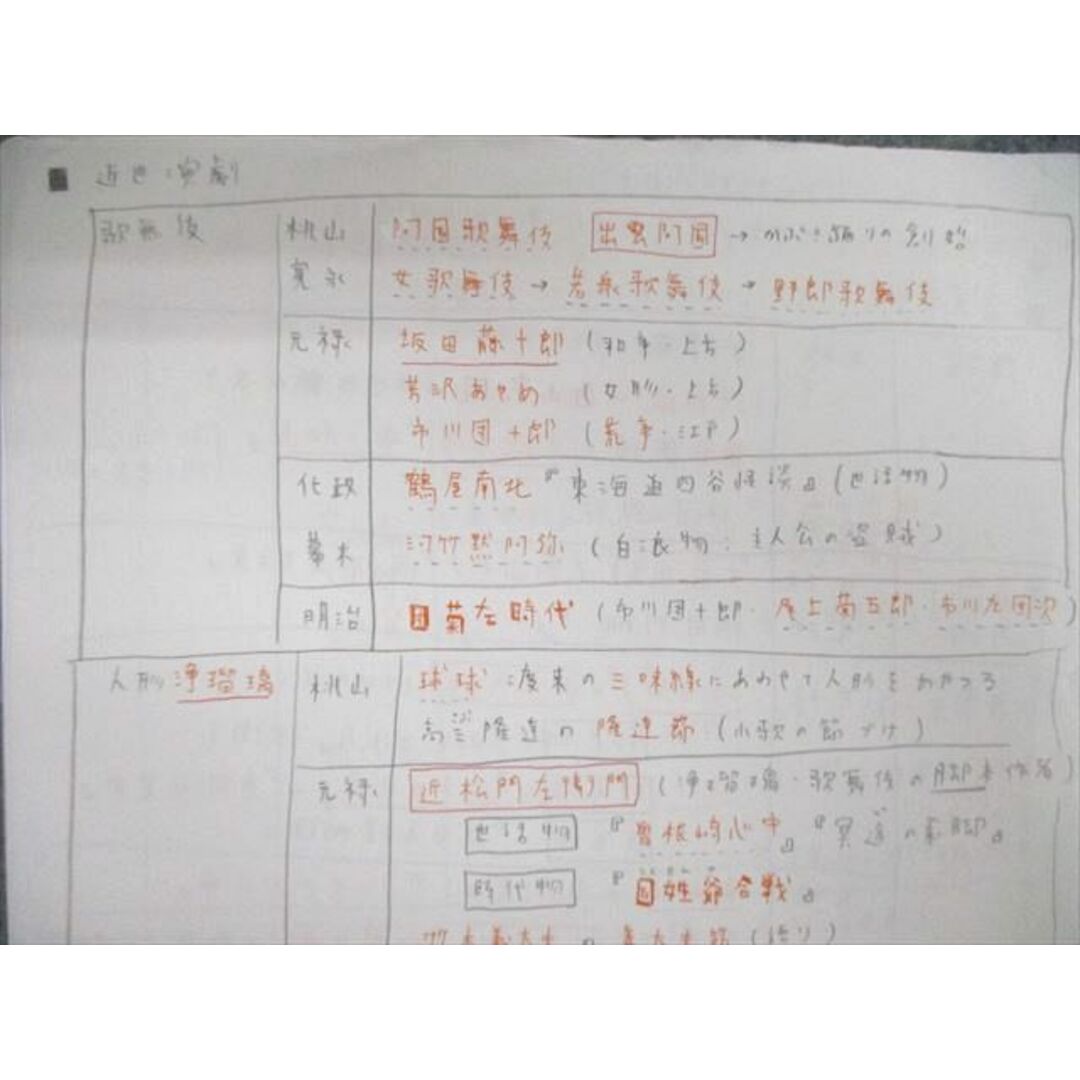 ■ 近世:演劇
歌舞伎 桃山 阿国歌舞伎 出雲阿国 → かぶき踊りの創始
寛永 女歌舞伎 → 若衆歌舞伎 → 野郎歌舞伎
元禄 坂田藤十郎 (和事・上方)
芳沢あやめ (女形・上方)
市川団十郎 (荒事・江戸)
化政 鶴屋南北『東海道四谷怪談』(世話物)
幕末 河竹黙阿弥 (白浪物:主人公の盗賊)
明治 団菊左時代 (市川団十郎・尾上菊五郎・市川左団次)
人形浄瑠璃 桃山 球球:渡来の三味線にあわせて人形をあやつる
高三隆達の隆達節 (小歌の節づけ)
元禄 近松門左衛門 (浄瑠璃・歌舞伎の脚本作者)
世話物 『曽根崎心中』『冥途の飛脚』
時代物 『国姓爺合戦』
竹本義太夫の義太夫節 (語り)